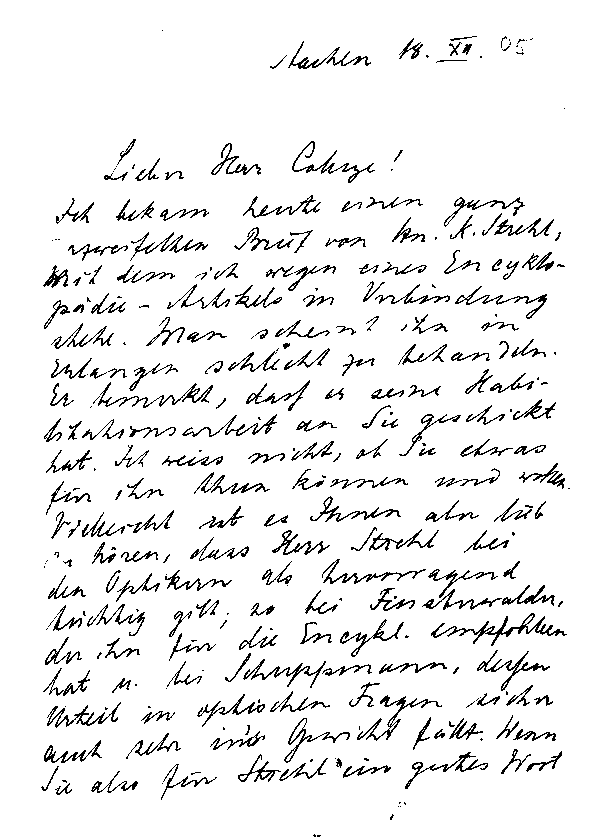 Aachen 18. XII. 05
Lieber Herr Cohrze!
Ich bekam heute einen ganz
verzweifelten Brief von Hn. K. Strehl,
mit dem ich wegen eines Encyklo-
pädie-Artikels in Verbindung
stehe. Man scheint ihn in
Erlangen schlecht zu behandeln.
Er bemerkt, dass er seine Habi-
litationsarbeit an Sie geschickt
hat. Ich weiss nicht, ob Sie etwas
für ihn thun können und wollen.
Vielleicht ist es Ihnen aber lieb
zu hören, dass Herr Strehl bei
den Optikern als hervorragend
tüchtig gilt, so bei Finsterwalder,
der ihn für die Encykl. empfohlen
hat u. bei Schuppmann, dessen
Urteil in optischen Fragen sicher
auch sehr ins Gewicht fällt. Wenn
Sie also für Strehl ein gutes Wort